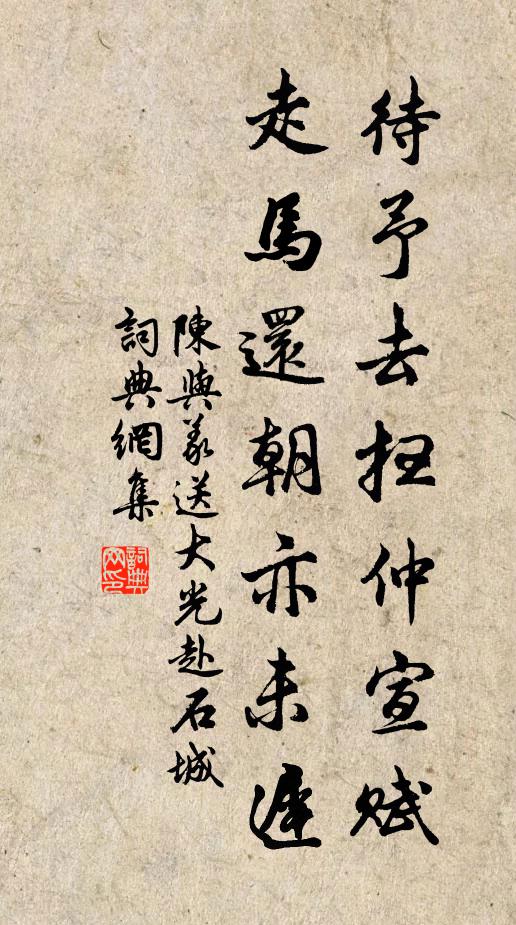 待予去掃仲宣賦
走馬還朝亦未遲
陳與義送大光赴石城
詞典網集
詞典网印